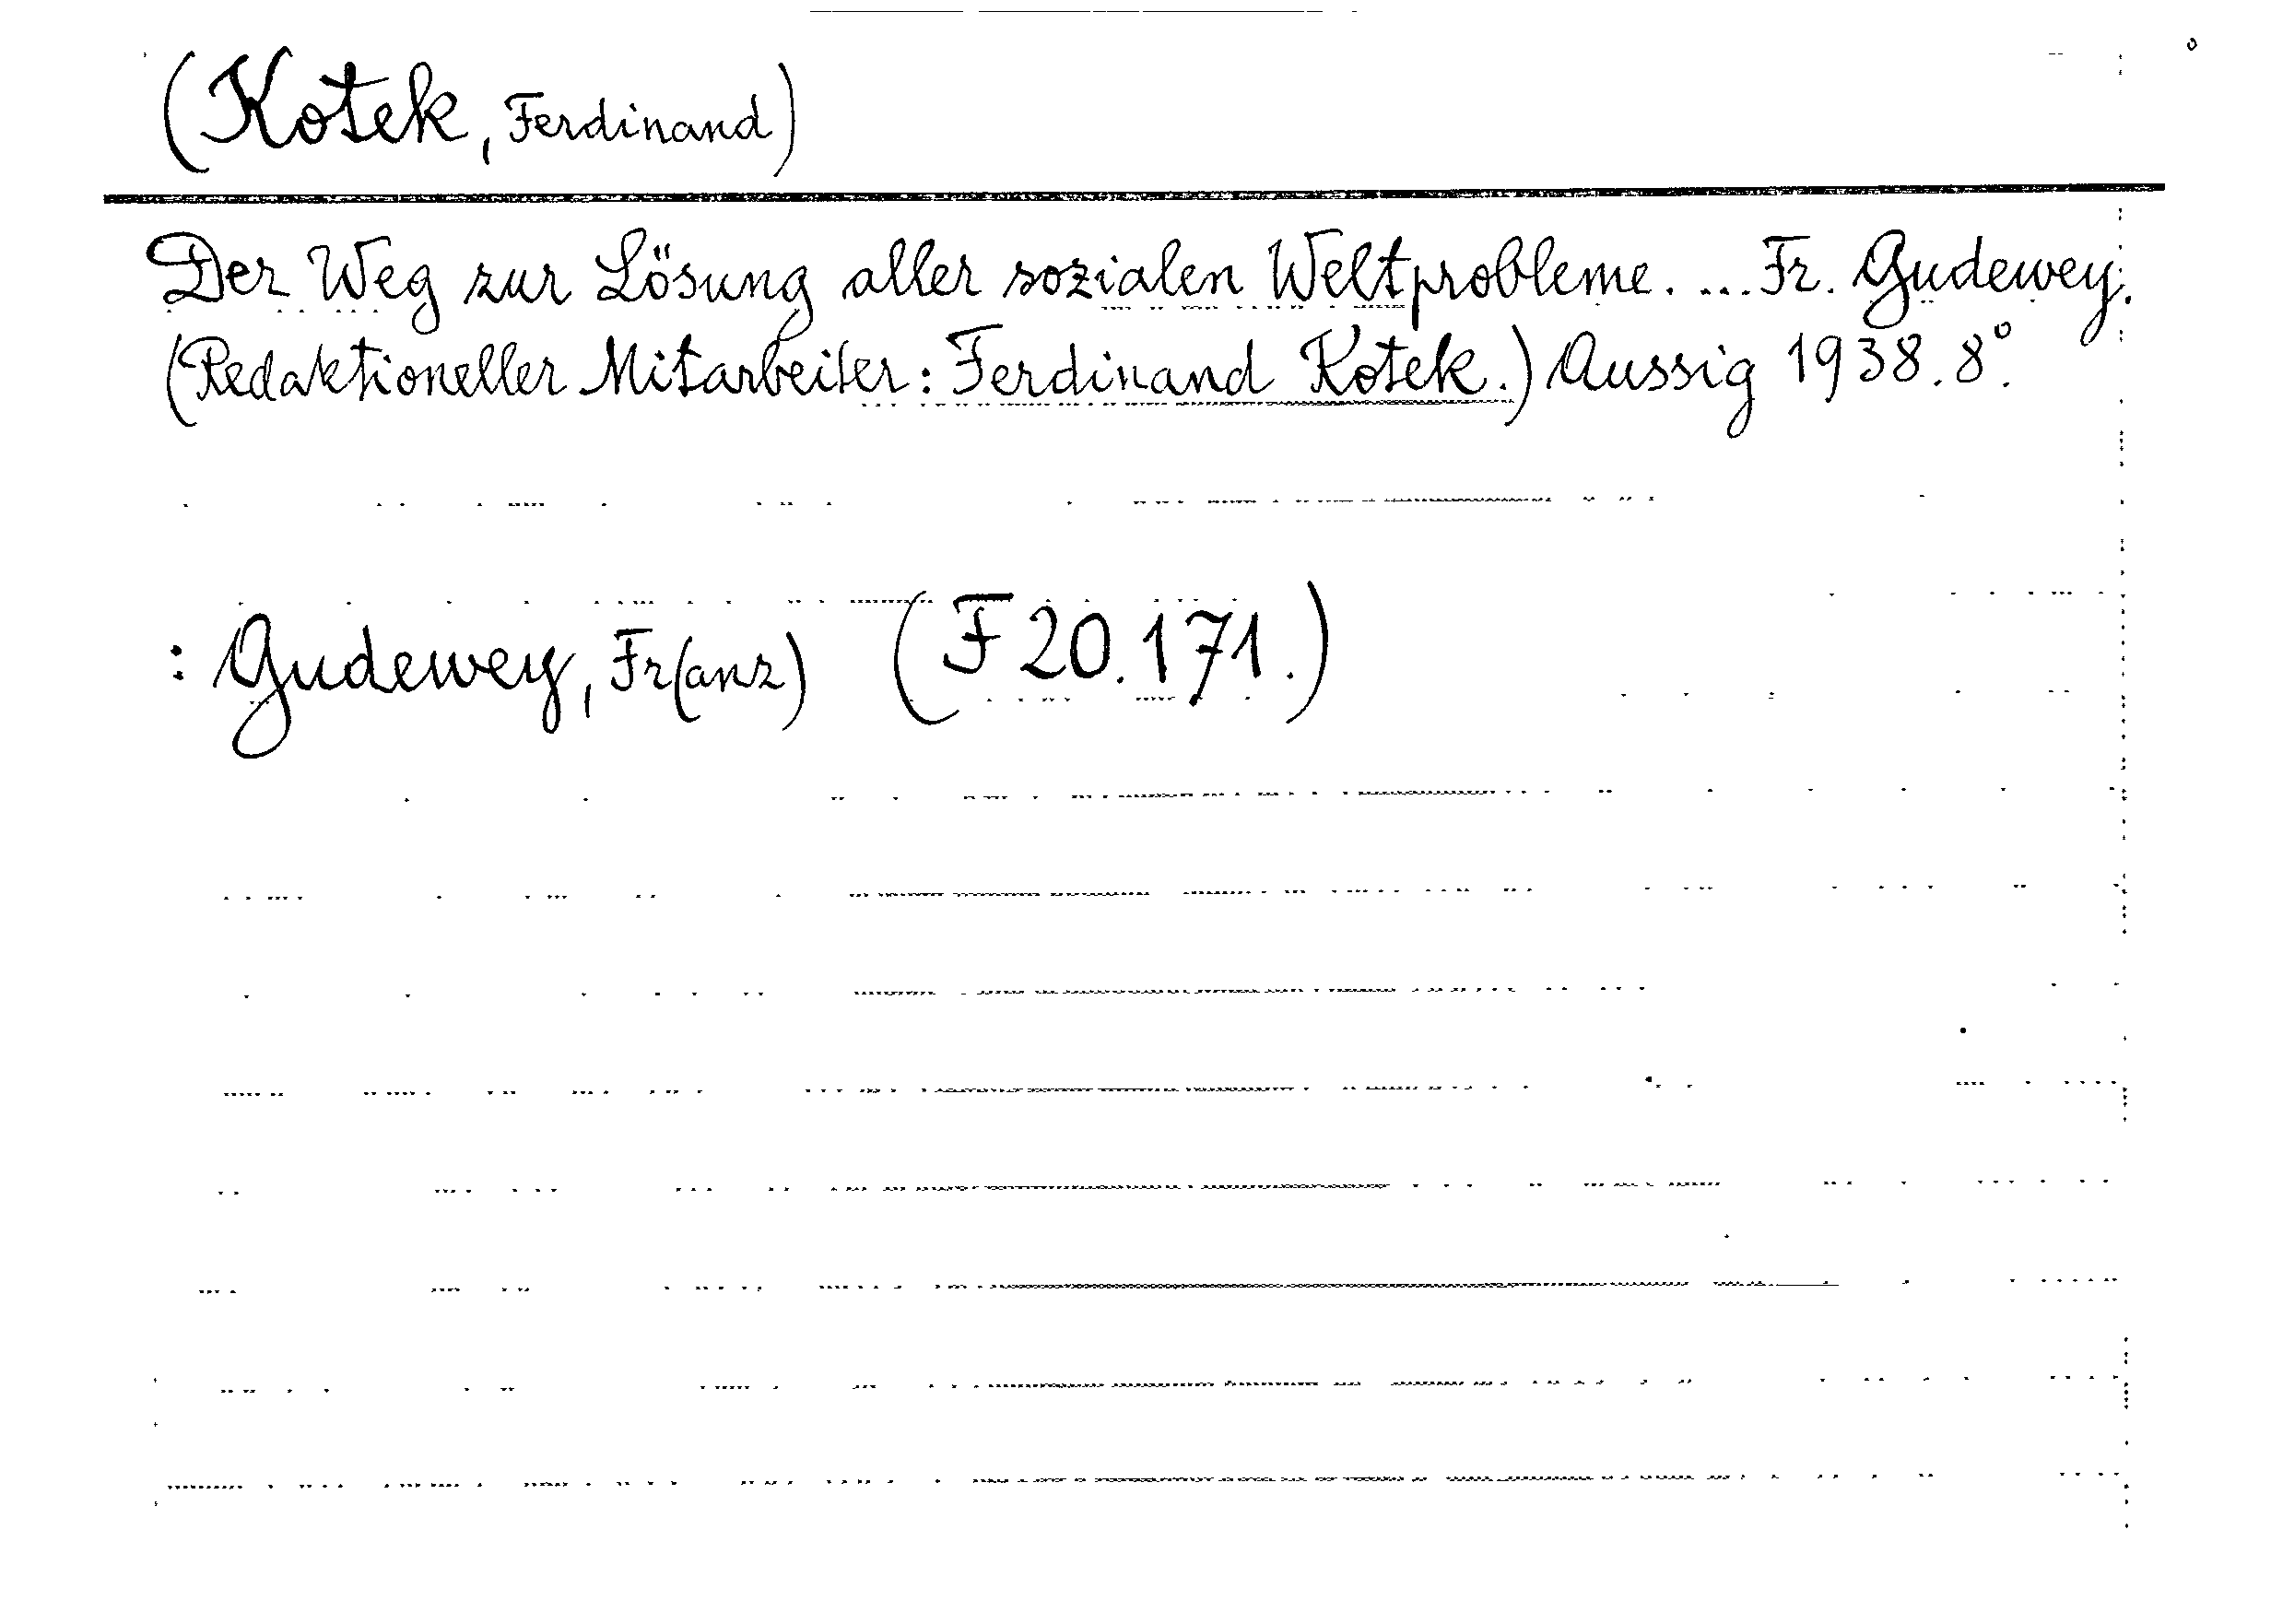 (Kotek, Ferdinand)
Der Weg zur Lösung aller sozialen Weltprobleme. ... Fr. Gudewey.
(Redaktioneller Mitarbeiter: Ferdinand Kotek.) Aussig 1938. 8°.
: Gudewey, Fr(anz) (F 20.171.)